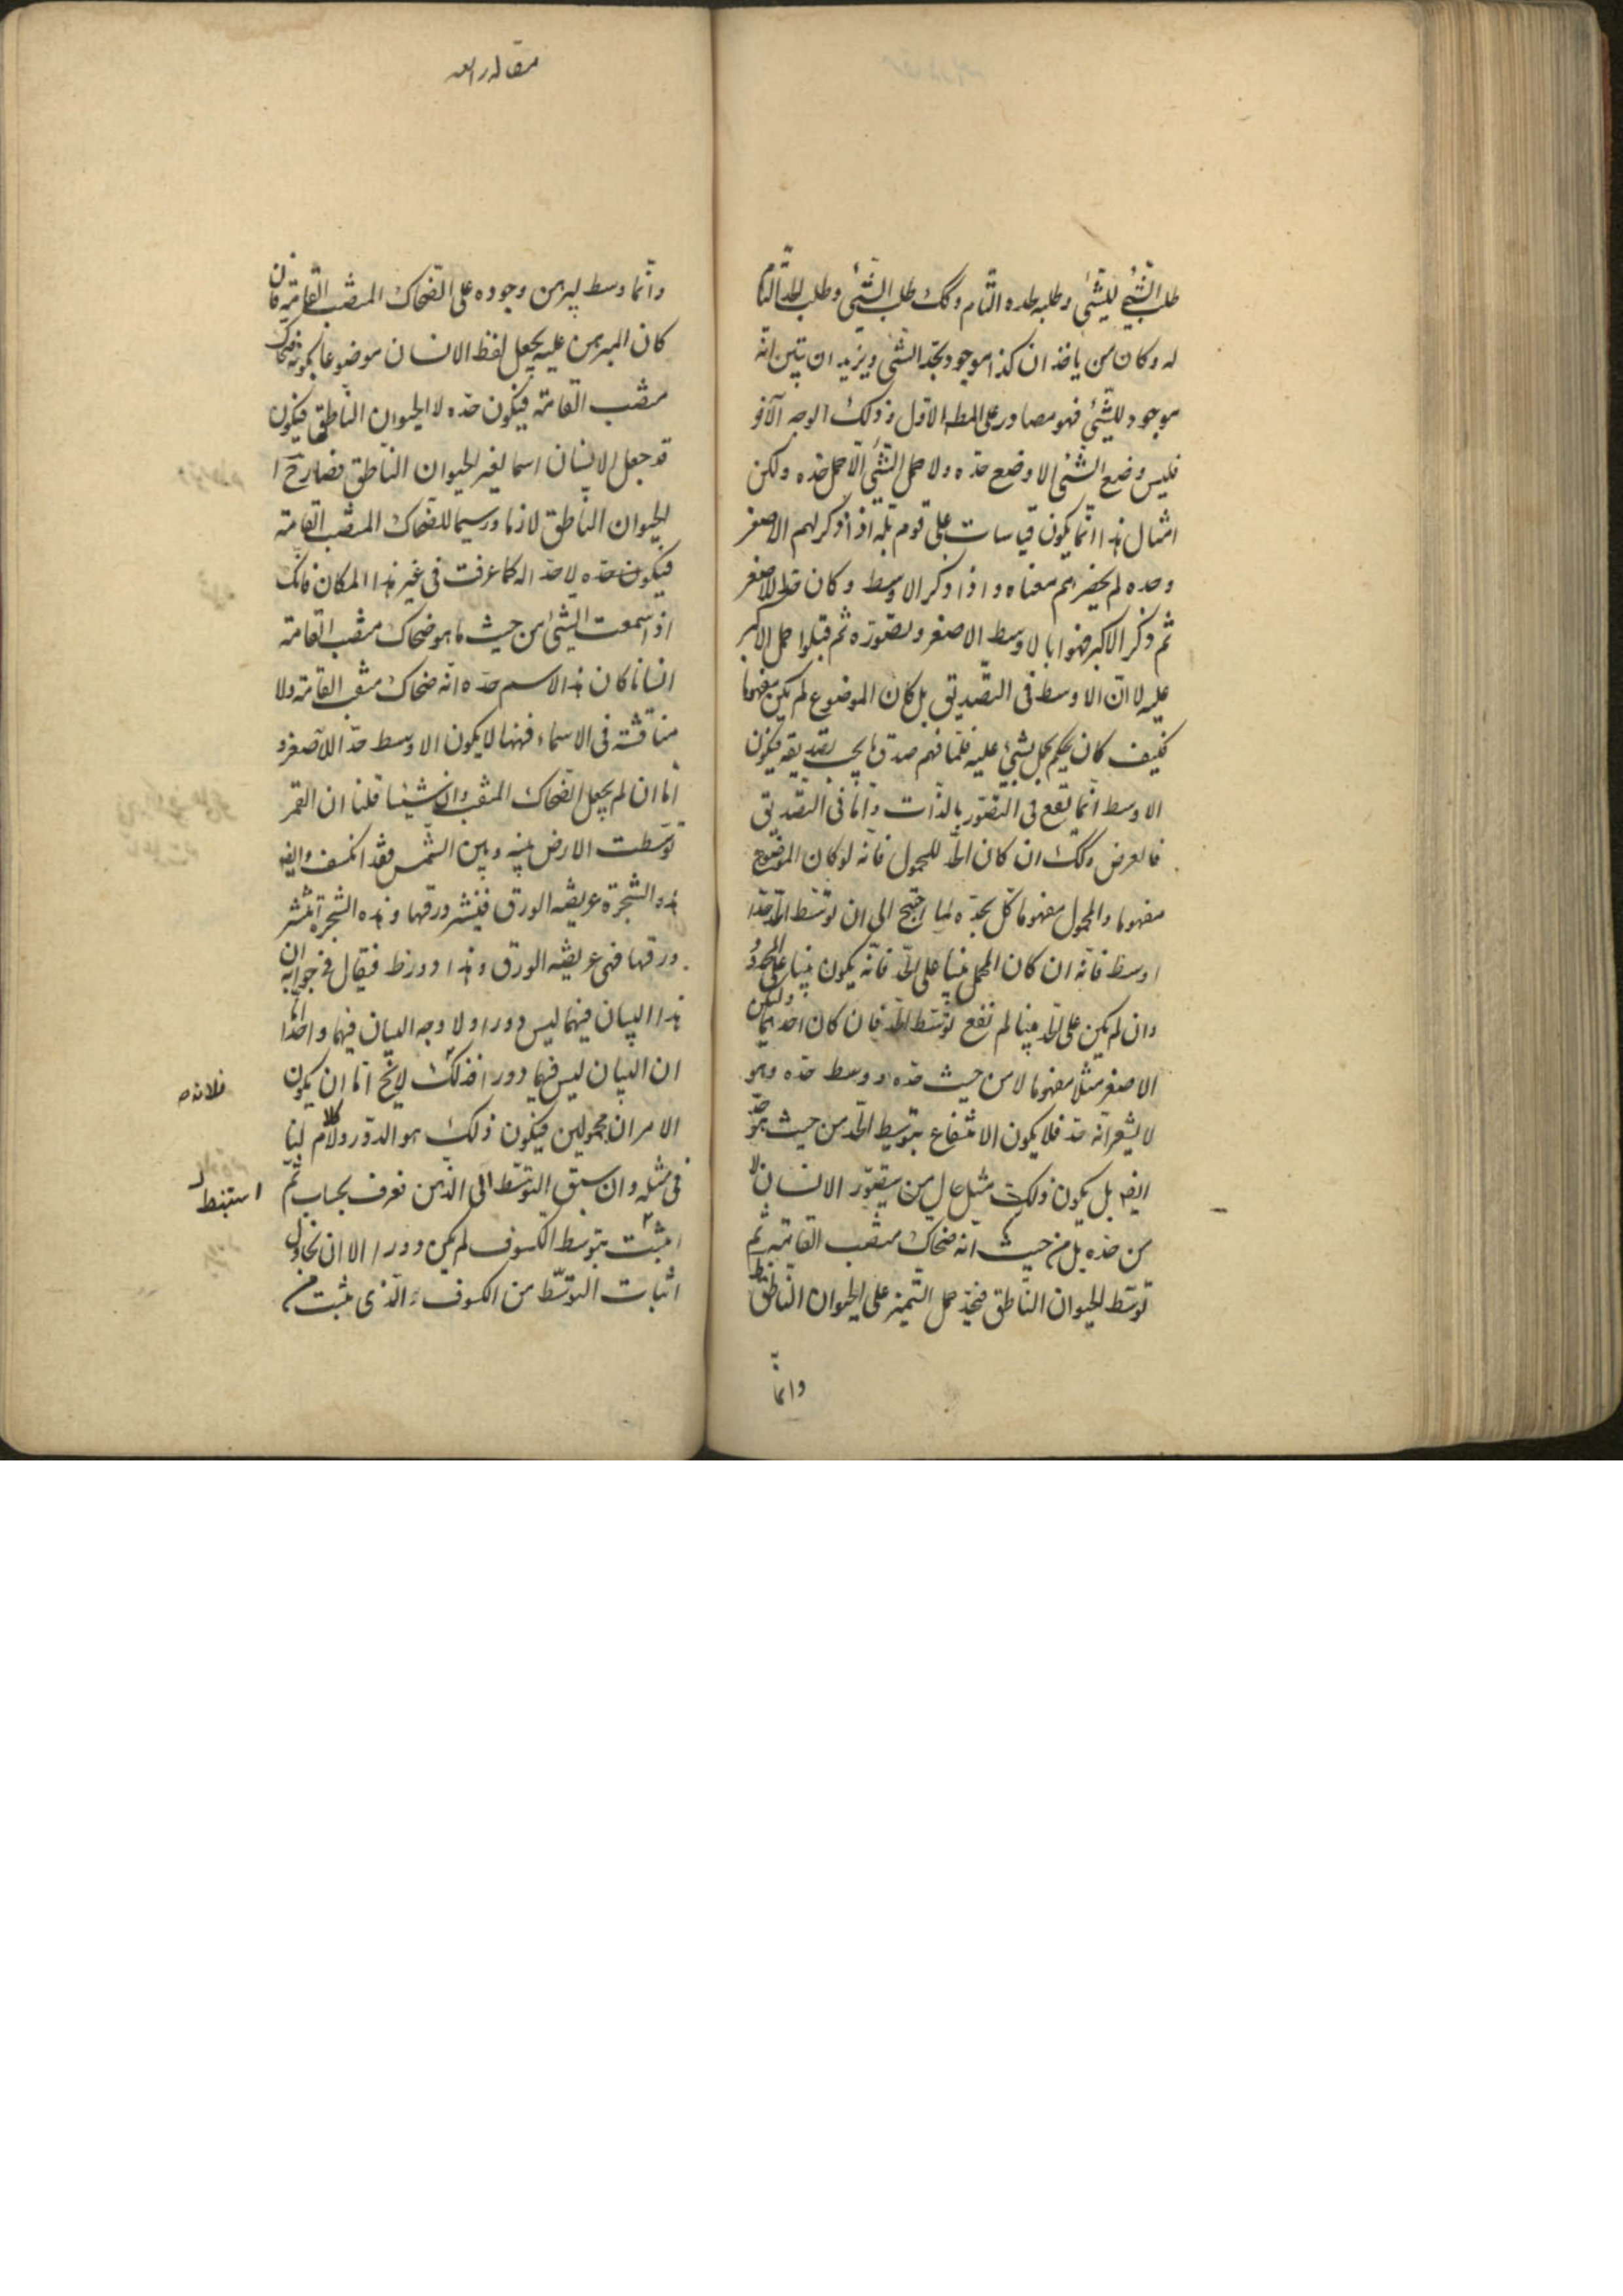 طلب الشئ للشئ وطلبه لحده التام وكك طلب الشئ وطلب الحد التام
له وكان من ياخذ ان كذا موجود بحد الشئ ويريد ان يتبين انه
موجود للشئ فهو مصادر على المط الاول وذلك الوجه الآخر
فليس وضع الشئ الا وضع حده ولا حمل الشئ الا حمل حده ولكن
امثال هذا انما يكون قياسات على قوم بله اذا ذكر لهم الاصغر
وحده لم يحضرهم معناه واذا ذكر الاوسط وكان حد الاصغر
ثم ذكر الاكبر فهموا بالاوسط الاصغر وتصوره ثم قبلوا حمل الاكبر
عليه لا ان الاوسط فى التصديق بل كان الموضوع لم يكن مفهوما
فكيف كان يحكم بحمل شئ عليه فلما فهم صدق بما يجب تصديقه فيكون
الاوسط انما يقع فى التصور بالذات واما فى التصديق
فالعرض وكك ان كان الحد للمحمول فانه لو كان الموضوع
مفهوما والمحمول مفهوما كل بحده لما احتيج الى ان توسط الحد حدا
اوسط فانه ان كان الحمل بينا على الحد فانه يكون بينا على المحدود
وان لم يكن على الحد بينا لم ينفع توسط الحد فان كان احدهما وليكن
الاصغر مثلا مفهوما لا من حيث حده ووسط حده وهو
لا يشعر انه حد فلا يكون الانتفاع بتوسيط الحد من حيث هو حد
ايضا بل يكون ذلك مثل حال من يتصور الانسان لا
من حده بل من حيث انه ضحاك منتصب القامة ثم
توسط الحيوان الناطق فيجد حمل التميز على الحيوان الناطق
وانما
مقاله رابعه
وانما وسط ليبرهن وجوده على الضحاك المنتصب القامة فان
كان المبرهن عليه يجعل لفظ الانسان موضوعا لكونه ضحاك
منتصب القامة فيكون حده لا الحيوان الناطق فيكون
قد جعل الانسان اسما لغير الحيوان الناطق فصار ح
الحيوان الناطق لازما ورسما للضحاك المنتصب القامة
فيكون حده لا حدا له كما عرفت فى غير هذا المكان فانك
اذا سمعت الشئ من حيث ما هو ضحاك منتصب القامة
انسانا كان هذا الاسم حده انه ضحاك منتصب القامة ولا
مناقشة فى الاسماء فههنا لا يكون الاوسط حدا للاصغر و
اما ان لم يجعل الضحاك المنتصب انسانا شيئا قلنا ان القمر
توسطت الارض بينه وبين الشمس فقد انكسف وايضا
هذه الشجرة عريضة الورق فينتشر ورقها وهذه الشجرة ينتشر
ورقها فهى عريضة الورق وهذا دور ظ فيقال فى جوابه ان
هذا البيان فيهما ليس دورا ولا وجه البيان فيهما واحدا اما
ان البيان ليس فيهما دورا فذلك لانه لا يخ اما ان يكون
الامران مجهولين فيكون ذلك هو الدور ولا كلام لنا
فى مثله وان سبق التوسط الى الذهن فعرف بحساب ثم
اثبت بتوسط الكسوف لم يكن دورا الا ان يحاول
اثبات التوسط من الكسوف الذى يثبت من
فلانه ص
استنبط